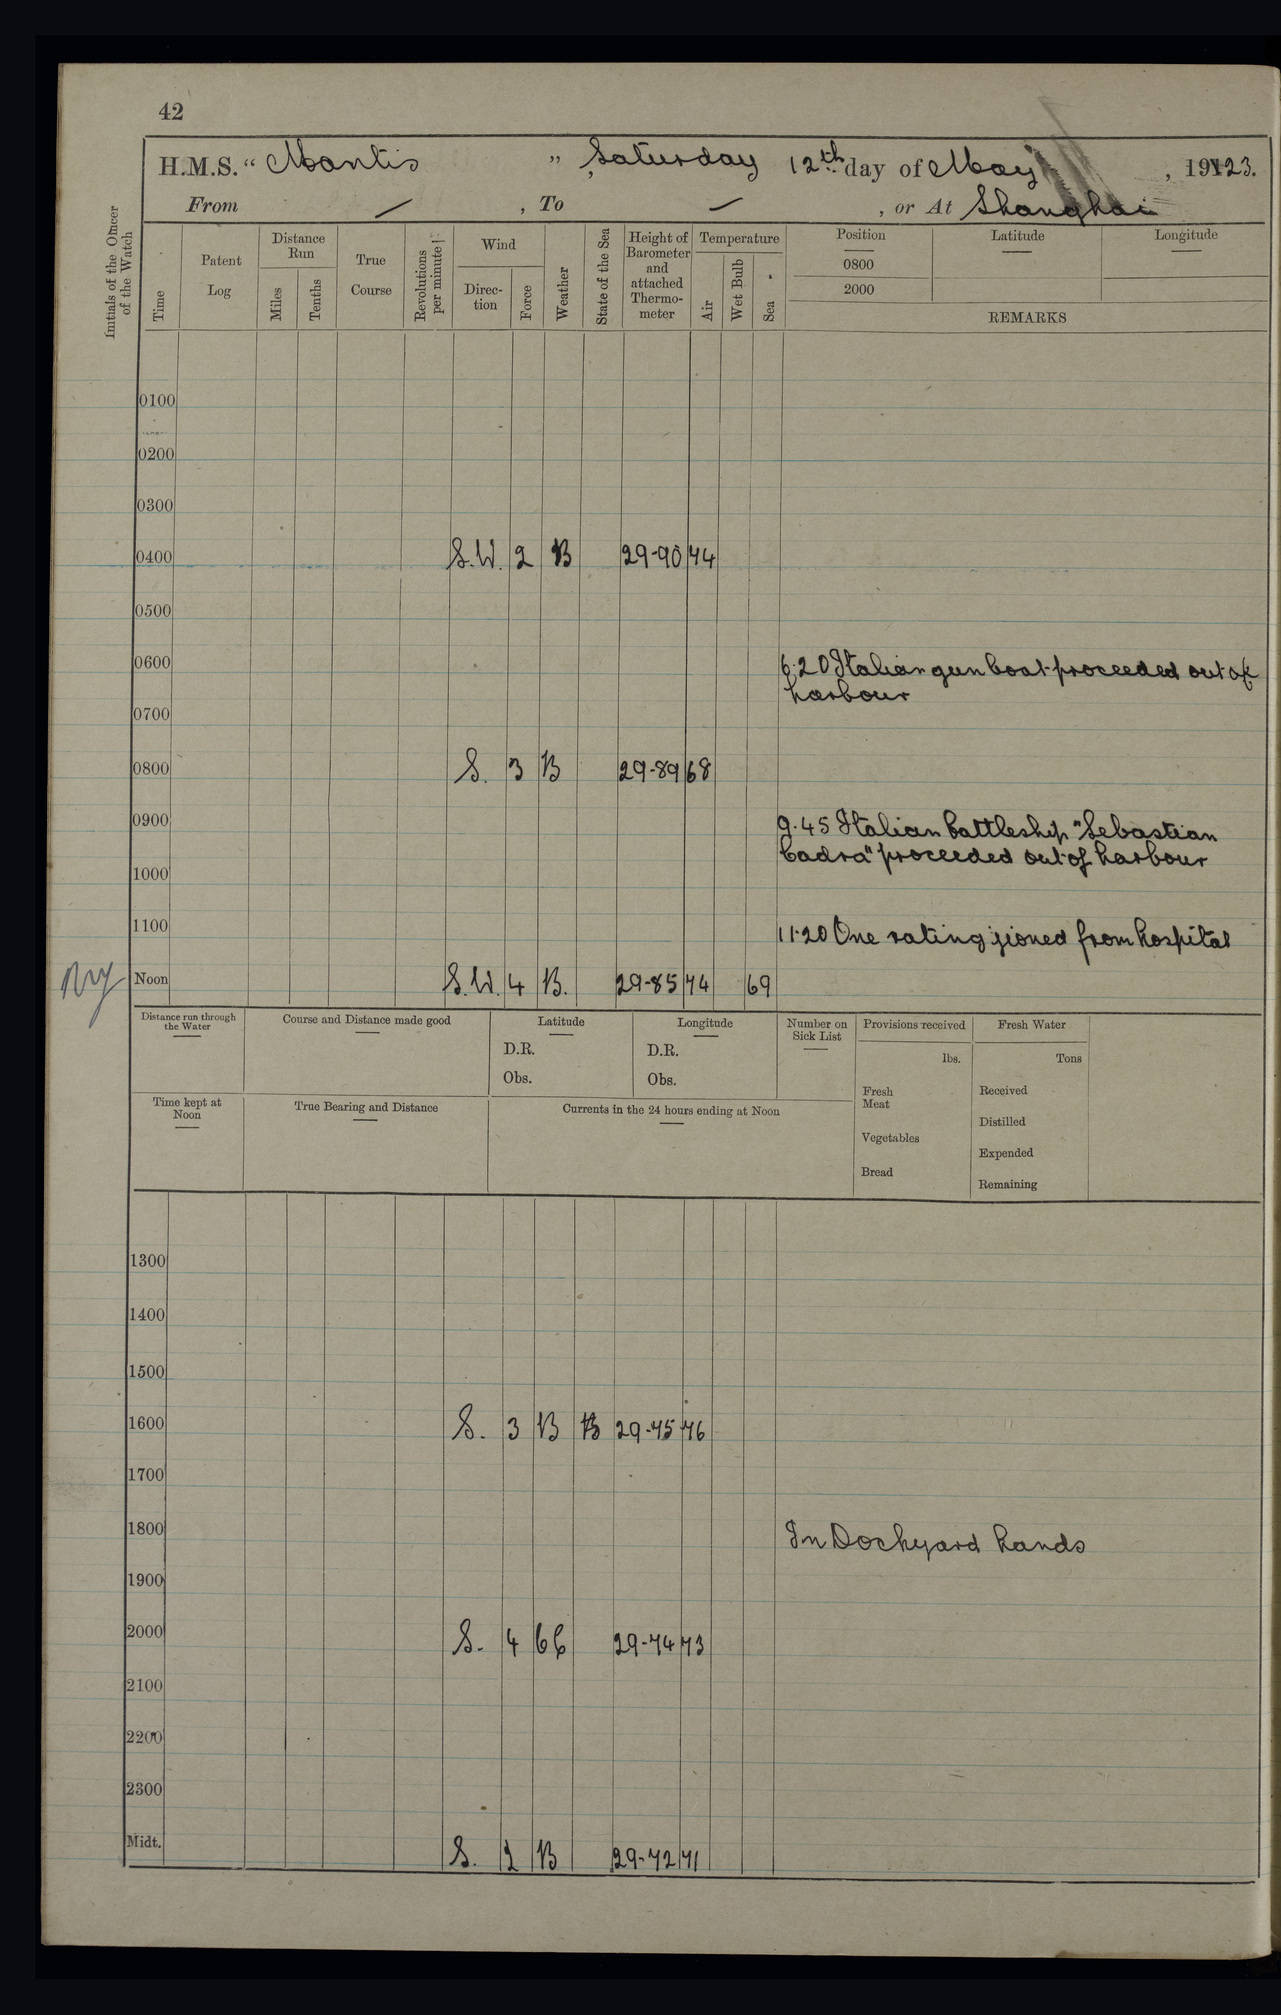 42
H.M.S. "Mantis", Saturday 12th day of May, 1923.
From — , To — , or At Shanghai
Initials of the Officer of the Watch
Time
Patent Log
Distance Run
Miles
Tenths
True Course
Revolutions per minute
Wind
Direc-tion
Force
Weather
State of the Sea
Height of Barometer and attached Thermo-meter
Temperature
Air
Wet Bulb
Sea
Position
Latitude
Longitude
0800
2000
REMARKS
0100
0200
0300
0400 S.W. 2 B 29-90 74
0500
0600 6.20 Italian gun boat proceeded out of
harbour
0700
0800 S. 3 B 29-89 68
0900 9.45 Italian battleship "Sebastian
Cadra" proceeded out of harbour
1000
1100 11.20 One rating jioned from hospital
Noon S.W. 4 B. 29-85 74 69
Distance run through the Water
Course and Distance made good
Latitude
D.R.
Obs.
Longitude
D.R.
Obs.
Number on Sick List
Provisions received
lbs.
Fresh Meat
Vegetables
Bread
Fresh Water
Tons
Received
Distilled
Expended
Remaining
Time kept at Noon
True Bearing and Distance
Currents in the 24 hours ending at Noon
1300
1400
1500
1600 S. 3 B B 29-75 76
1700
1800 In Dockyard hands
1900
2000 S. 4 29-74 73
2100
2200
2300
Midt. S. 2 B 29-72 71